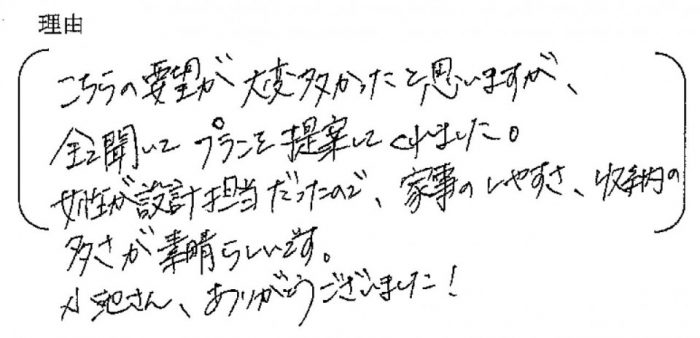 理由
こちらの要望が大変多かったと思いますが、
全て聞いてプランを提案してくれました。
女性が設計担当だったので、家事のしやすさ、収納の
多さが素晴らしいです。
小池さん、ありがとうございました!